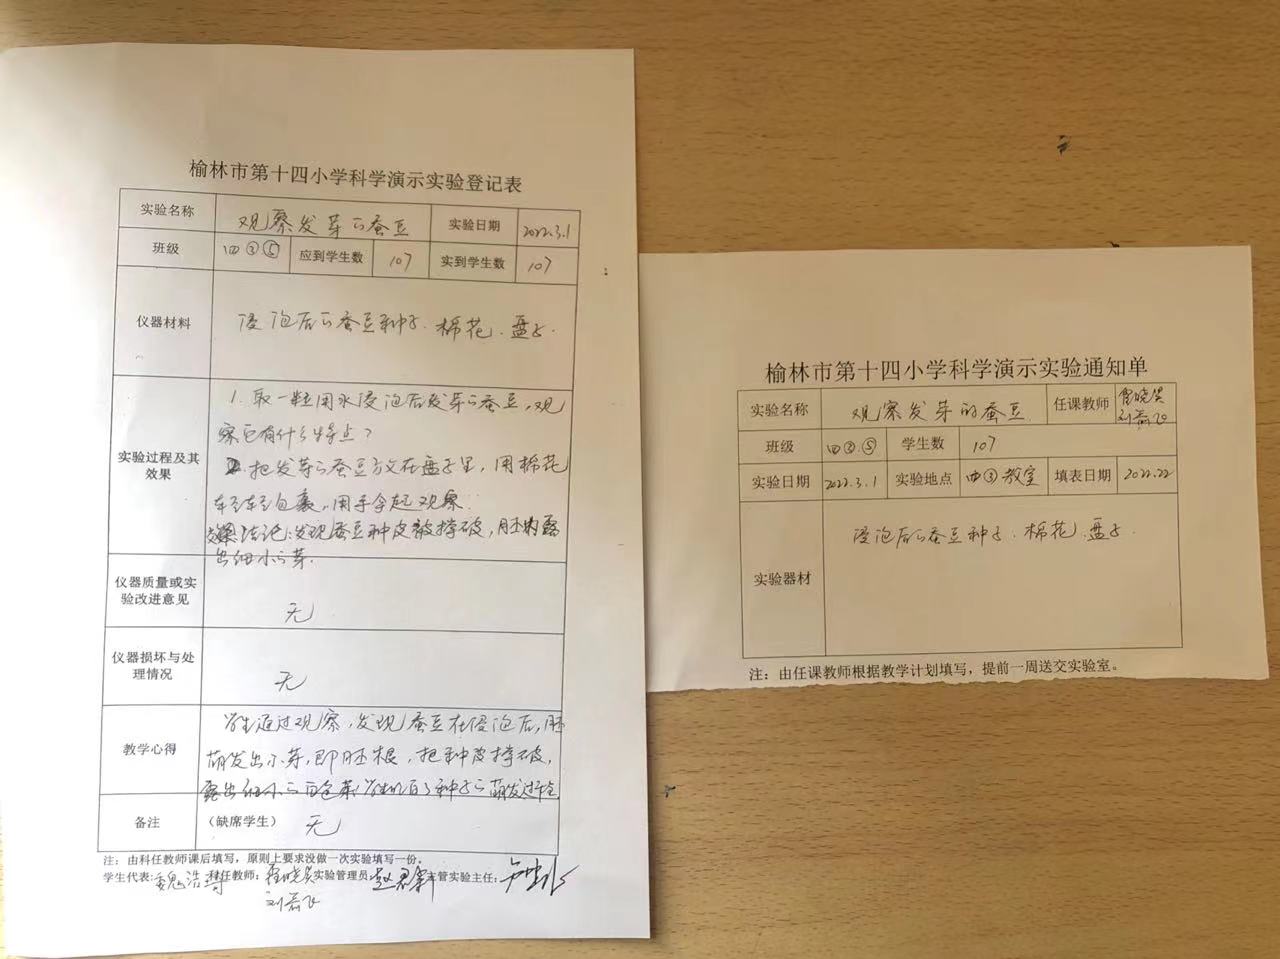 榆林市第十四小学科学演示实验登记表
实验名称 观察发芽的蚕豆 实验日期 2022.3.1
班级 四③⑤ 应到学生数 107 实到学生数 107
仪器材料 浸泡后的蚕豆种子.棉花.盘子.
实验过程及其效果
1.取一粒用水浸泡后发芽的蚕豆,观
察它有什么特点?
2.把发芽的蚕豆放在盘子里,用棉花
轻轻包裹,用手拿起观察.
结论:发现蚕豆种皮被撑破,胚内露
出细小的芽.
仪器质量或实验改进意见 无
仪器损坏与处理情况 无
教学心得
学生通过观察,发现蚕豆在浸泡后,胚
萌发出小芽,即胚根,把种皮撑破,
露出细小的白色芽,学生明白了种子的萌发过程
备注 (缺席学生) 无
注:由科任教师课后填写,原则上要求没做一次实验填写一份。
学生代表:魏浩 任教师: 实验管理员: 主管实验主任:
榆林市第十四小学科学演示实验通知单
实验名称 观察发芽的蚕豆 任课教师
班级 四③.⑤ 学生数 107
实验日期 2022.3.1 实验地点 四③教室 填表日期 2022.22
实验器材 浸泡后的蚕豆种子.棉花.盘子.
注:由任课教师根据教学计划填写,提前一周送交实验室。